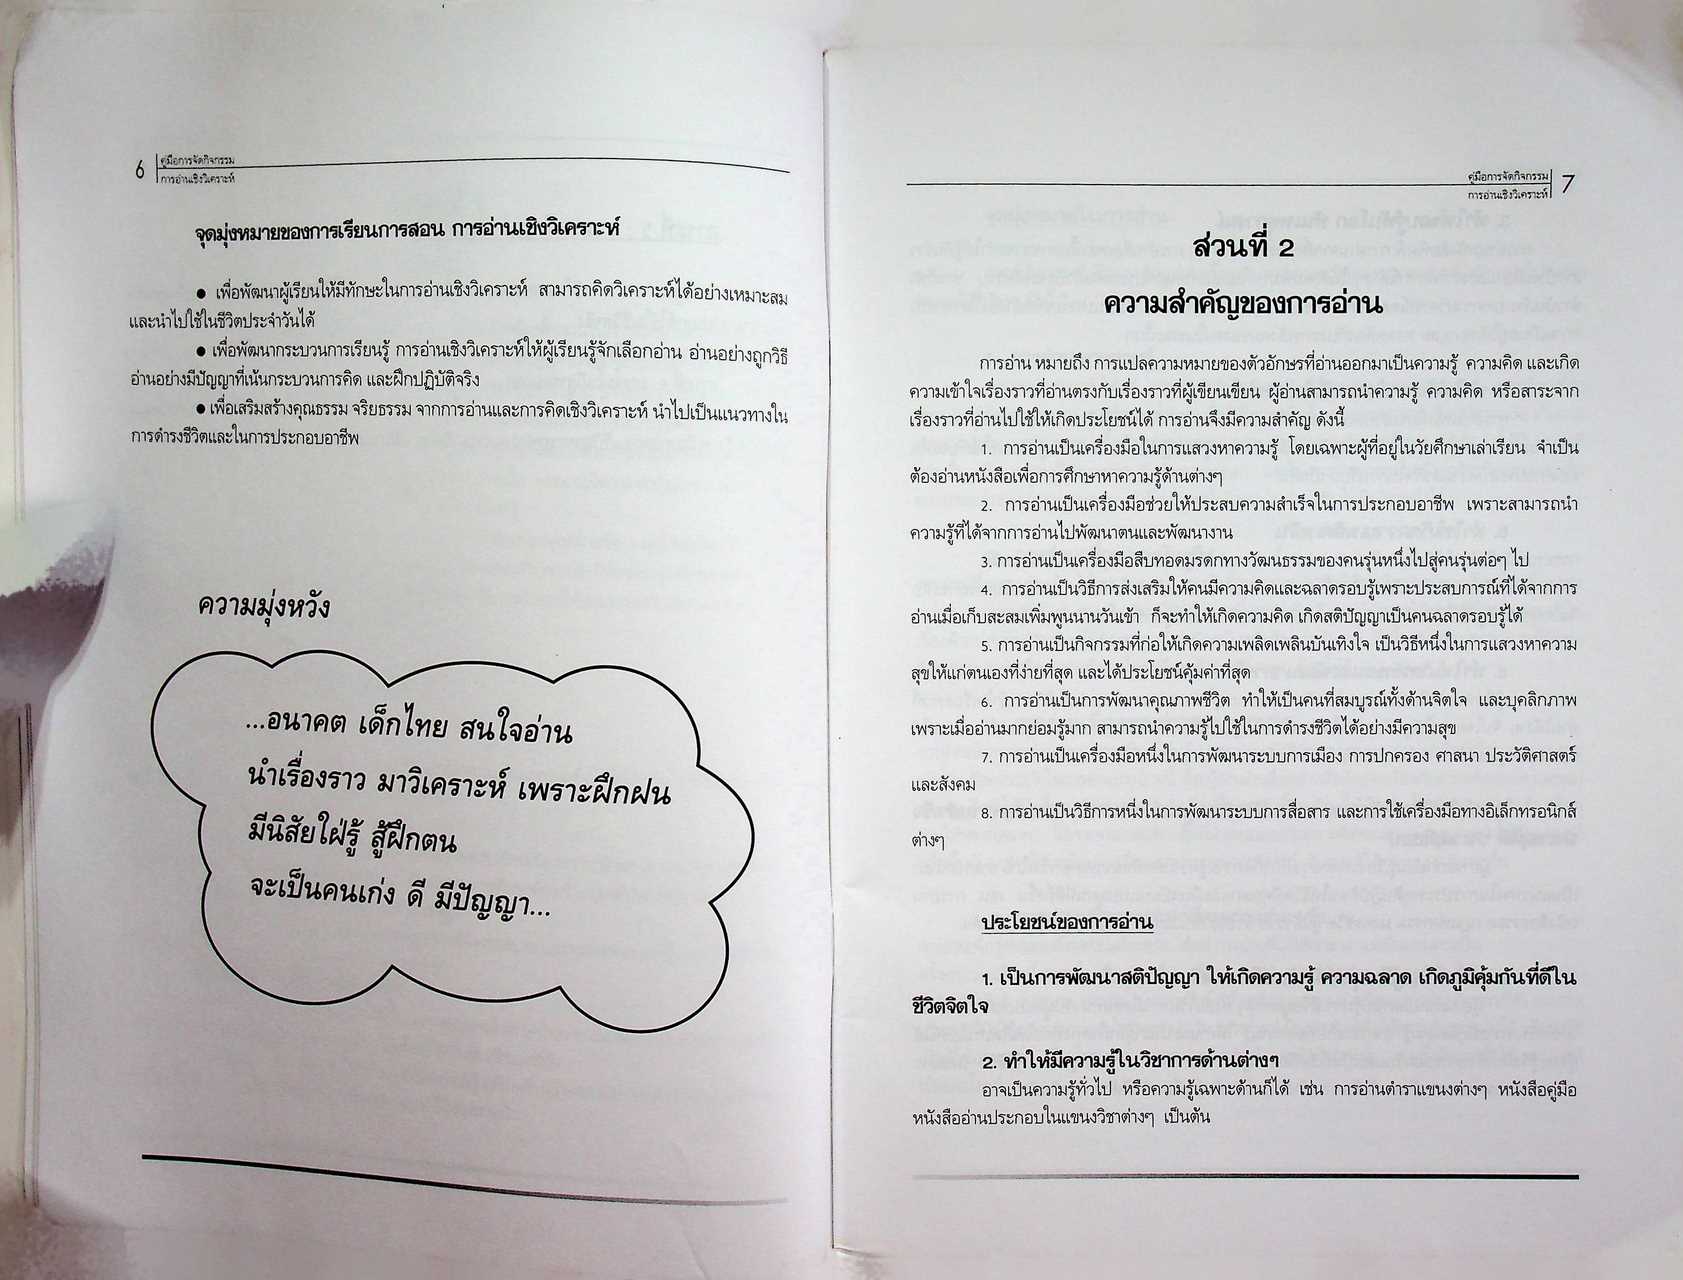 6
คู่มือการจัดกิจกรรม
การอ่านเชิงวิเคราะห์
จุดมุ่งหมายของการเรียนการสอน การอ่านเชิงวิเคราะห์
● เพื่อพัฒนาผู้เรียนให้มีทักษะในการอ่านเชิงวิเคราะห์ สามารถคิดวิเคราะห์ได้อย่างเหมาะสม
และนำไปใช้ในชีวิตประจำวันได้
● เพื่อพัฒนากระบวนการเรียนรู้ การอ่านเชิงวิเคราะห์ให้ผู้เรียนรู้จักเลือกอ่าน อ่านอย่างถูกวิธี
อ่านอย่างมีปัญญาที่เน้นกระบวนการคิด และฝึกปฏิบัติจริง
● เพื่อเสริมสร้างคุณธรรม จริยธรรม จากการอ่านและการคิดเชิงวิเคราะห์ นำไปเป็นแนวทางใน
การดำรงชีวิตและในการประกอบอาชีพ
ความมุ่งหวัง
...อนาคต เด็กไทย สนใจอ่าน
นำเรื่องราว มาวิเคราะห์ เพราะฝึกฝน
มีนิสัยใฝ่รู้ สู้ฝึกตน
จะเป็นคนเก่ง ดี มีปัญญา...
คู่มือการจัดกิจกรรม
การอ่านเชิงวิเคราะห์
7
ส่วนที่ 2
ความสำคัญของการอ่าน
การอ่าน หมายถึง การแปลความหมายของตัวอักษรที่อ่านออกมาเป็นความรู้ ความคิด และเกิด
ความเข้าใจเรื่องราวที่อ่านตรงกับเรื่องราวที่ผู้เขียนเขียน ผู้อ่านสามารถนำความรู้ ความคิด หรือสาระจาก
เรื่องราวที่อ่านไปใช้ให้เกิดประโยชน์ได้ การอ่านจึงมีความสำคัญ ดังนี้
1. การอ่านเป็นเครื่องมือในการแสวงหาความรู้ โดยเฉพาะผู้ที่อยู่ในวัยศึกษาเล่าเรียน จำเป็น
ต้องอ่านหนังสือเพื่อการศึกษาหาความรู้ด้านต่างๆ
2. การอ่านเป็นเครื่องมือช่วยให้ประสบความสำเร็จในการประกอบอาชีพ เพราะสามารถนำ
ความรู้ที่ได้จากการอ่านไปพัฒนาตนและพัฒนางาน
3. การอ่านเป็นเครื่องมือสืบทอดมรดกทางวัฒนธรรมของคนรุ่นหนึ่งไปสู่คนรุ่นต่อๆ ไป
4. การอ่านเป็นวิธีการส่งเสริมให้คนมีความคิดและฉลาดรอบรู้เพราะประสบการณ์ที่ได้จากการ
อ่านเมื่อเก็บสะสมเพิ่มพูนนานวันเข้า ก็จะทำให้เกิดความคิด เกิดสติปัญญาเป็นคนฉลาดรอบรู้ได้
5. การอ่านเป็นกิจกรรมที่ก่อให้เกิดความเพลิดเพลินบันเทิงใจ เป็นวิธีหนึ่งในการแสวงหาความ
สุขให้แก่ตนเองที่ง่ายที่สุด และได้ประโยชน์คุ้มค่าที่สุด
6. การอ่านเป็นการพัฒนาคุณภาพชีวิต ทำให้เป็นคนที่สมบูรณ์ทั้งด้านจิตใจ และบุคลิกภาพ
เพราะเมื่ออ่านมากย่อมรู้มาก สามารถนำความรู้ไปใช้ในการดำรงชีวิตได้อย่างมีความสุข
7. การอ่านเป็นเครื่องมือหนึ่งในการพัฒนาระบบการเมือง การปกครอง ศาสนา ประวัติศาสตร์
และสังคม
8. การอ่านเป็นวิธีการหนึ่งในการพัฒนาระบบการสื่อสาร และการใช้เครื่องมือทางอิเล็กทรอนิกส์
ต่างๆ
ประโยชน์ของการอ่าน
1. เป็นการพัฒนาสติปัญญา ให้เกิดความรู้ ความฉลาด เกิดภูมิคุ้มกันที่ดีใน
ชีวิตจิตใจ
2. ทำให้มีความรู้ในวิชาการด้านต่างๆ
อาจเป็นความรู้ทั่วไป หรือความรู้เฉพาะด้านก็ได้ เช่น การอ่านตำราแขนงต่างๆ หนังสือคู่มือ
หนังสืออ่านประกอบในแขนงวิชาต่างๆ เป็นต้น